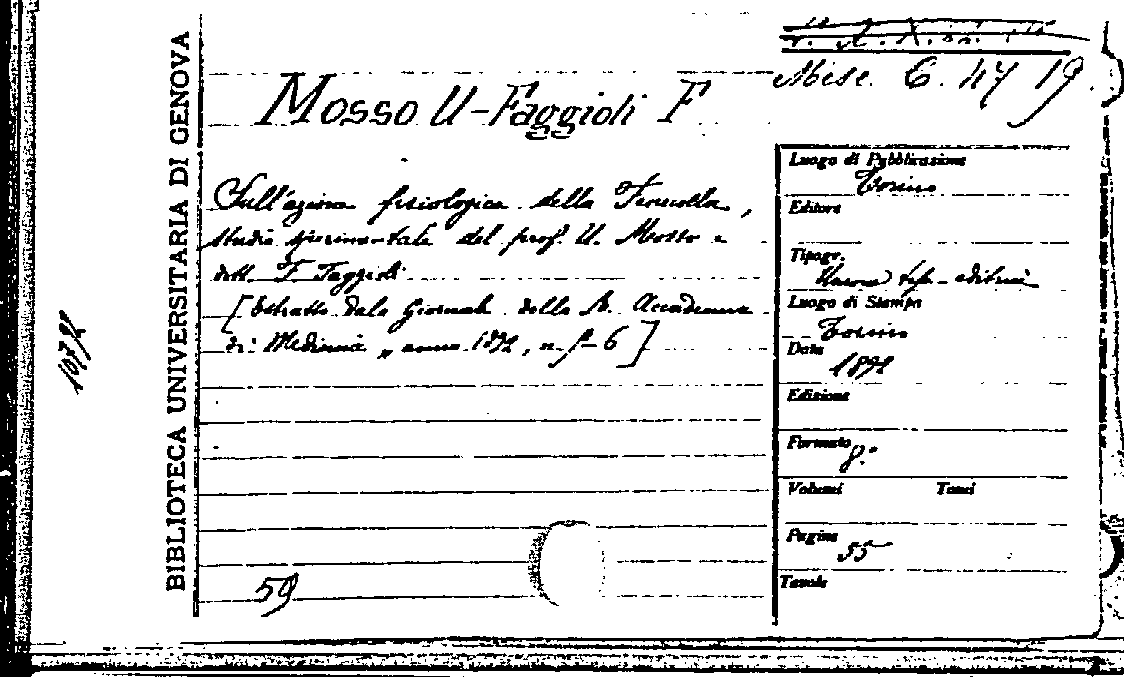 Misc. C. 47 19.
Mosso U - Faggioli F
BIBLIOTECA UNIVERSITARIA DI GENOVA
Sull'azione fisiologica della,
studio sperimentale del prof. U. Mosso e
dott. F. Faggioli
[Estratto dal Giornale della R. Accademia
di Medicina, anno 1892, n. 6]
59
Luogo di Pubblicazione
Torino
Editore
Tipogr.
tip-editrice
Luogo di Stampa
Torino
Data
1892
Edizione
Formato
8º
Volumi Tomi
Pagine
55
Tavole